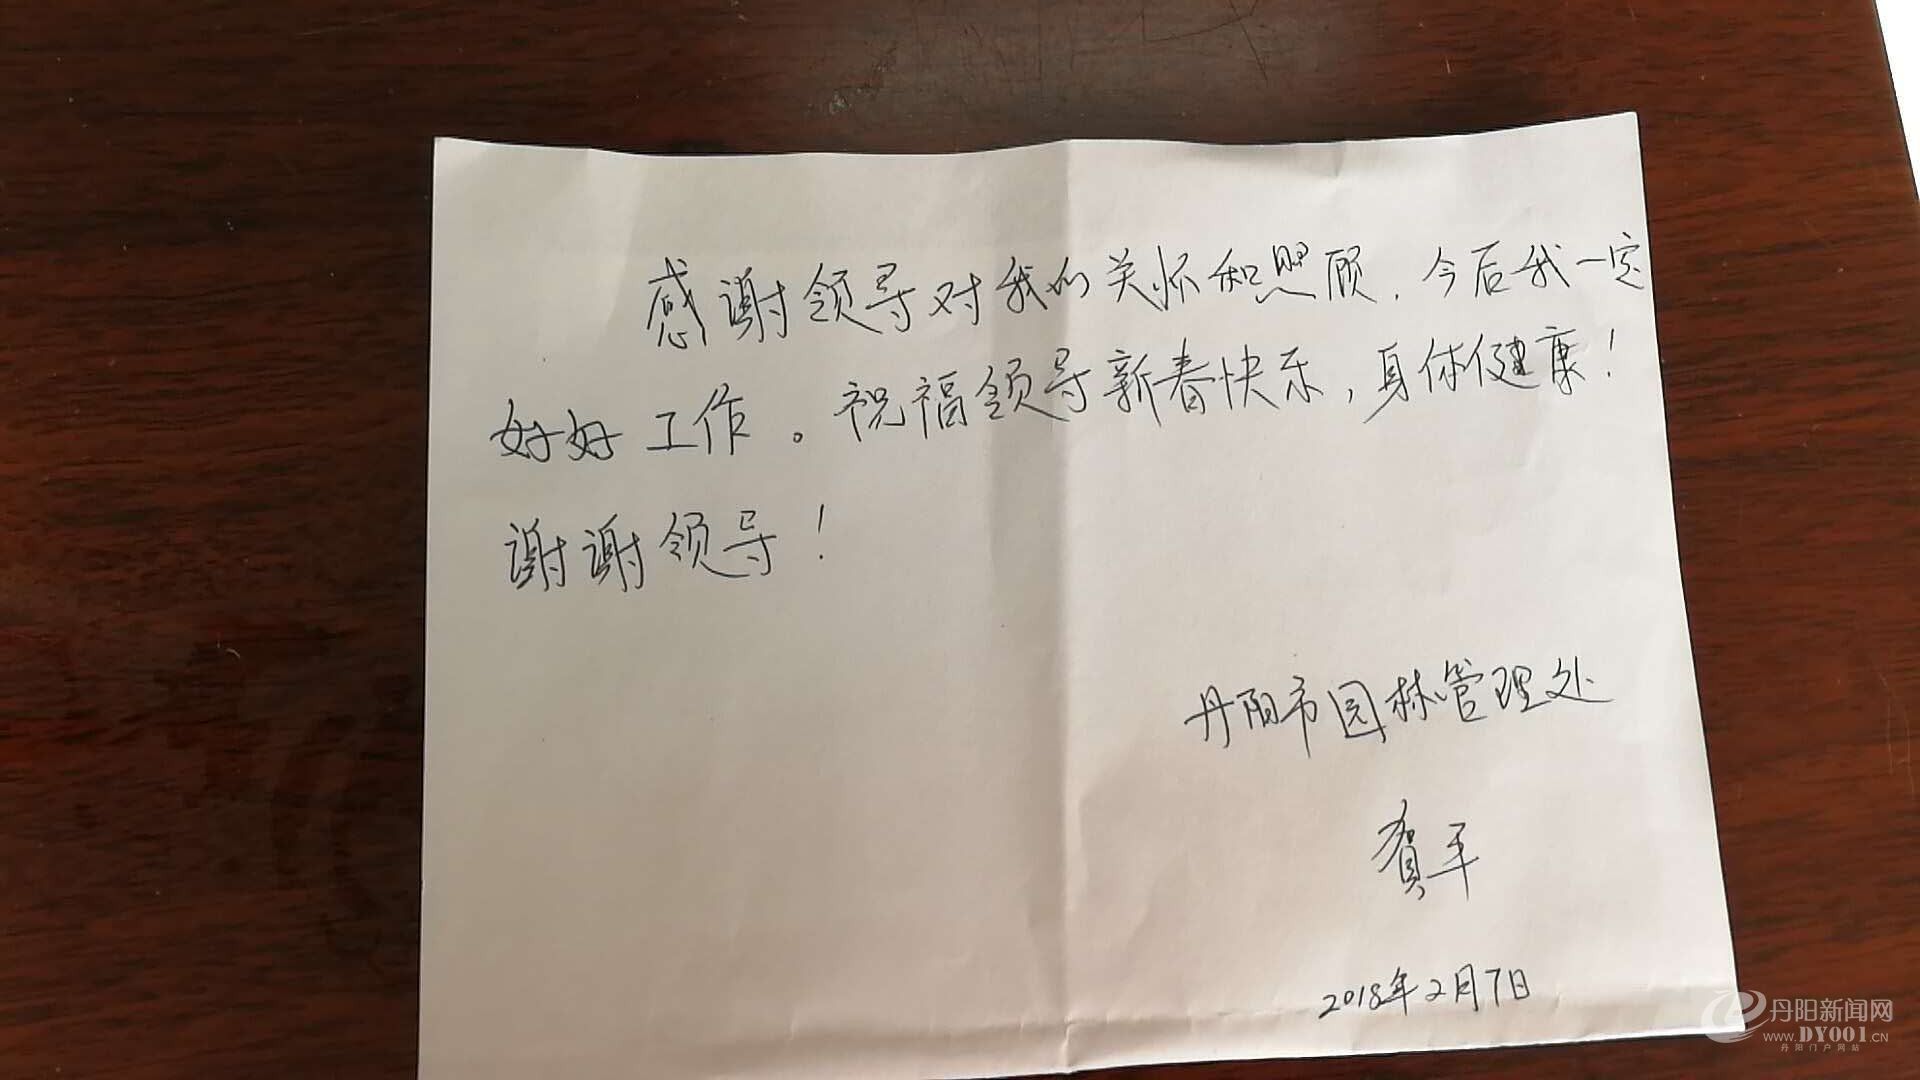 感谢领导对我的关怀和照顾，今后我一定
好好工作。祝福领导新春快乐，身体健康！
谢谢领导！
丹阳市园林管理处
贺平
2018年2月7日
丹阳新闻网
www.DY001.CN
丹阳门户网站